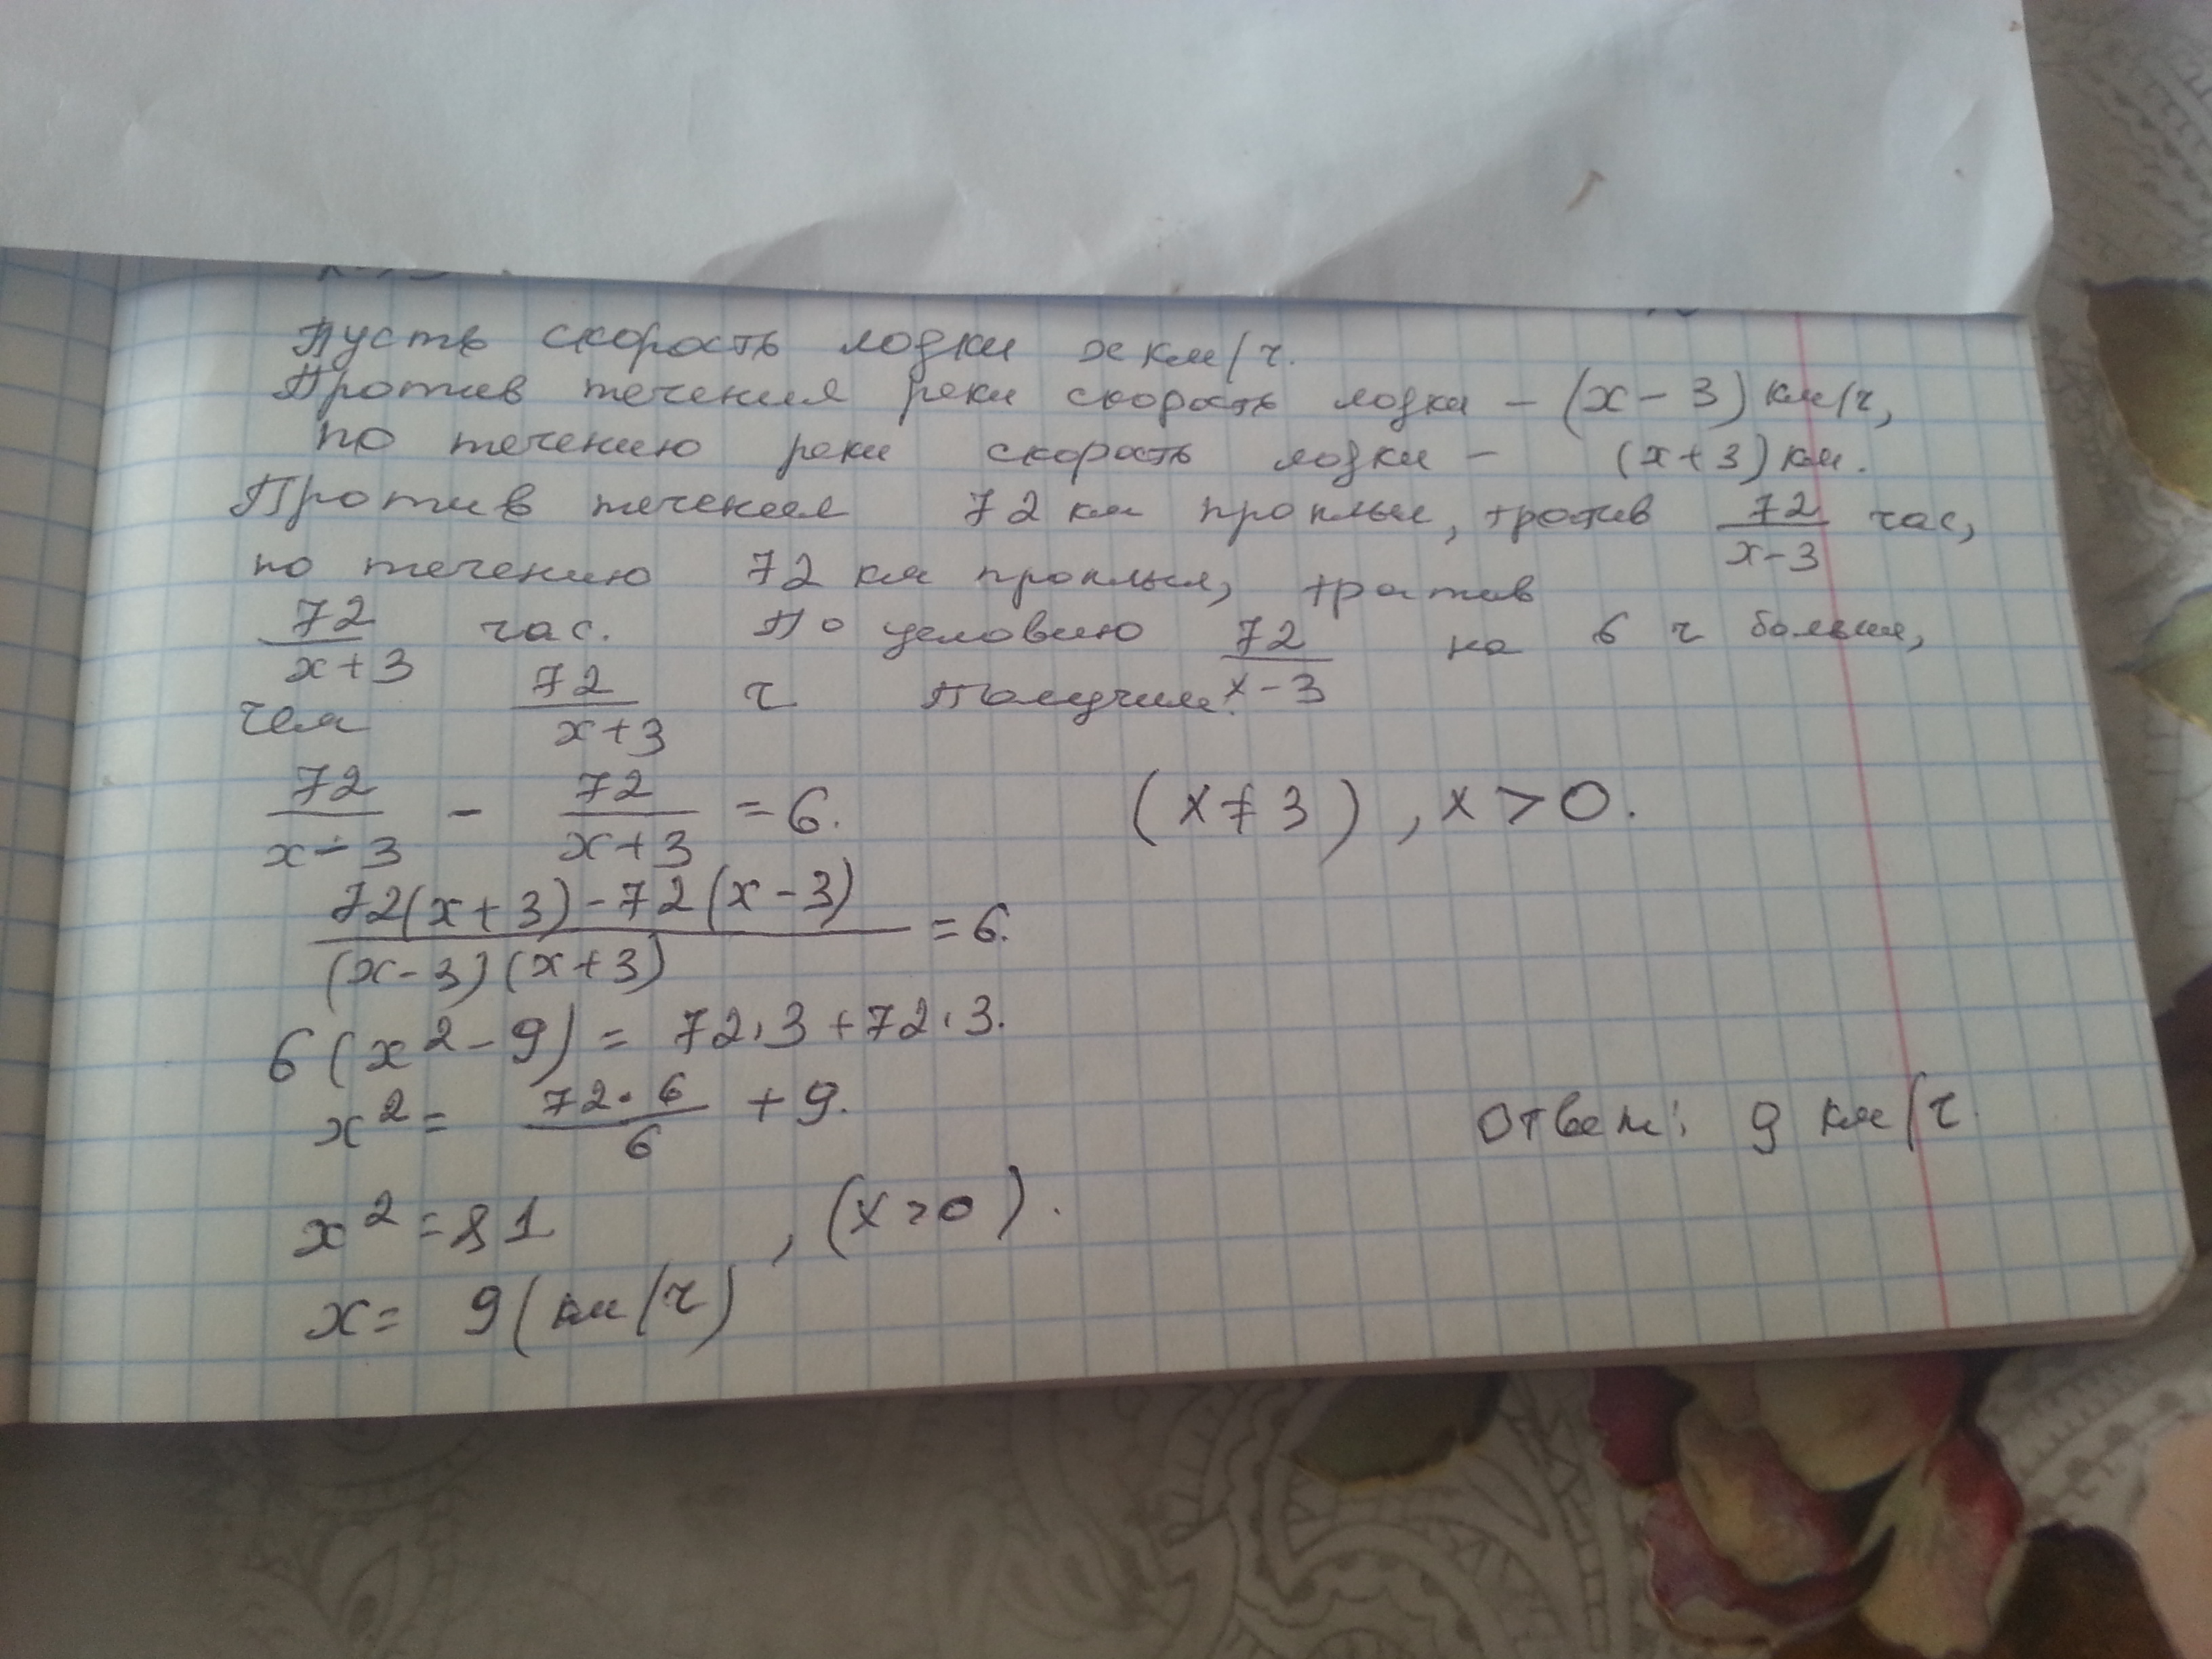 Пусть скорость лодки x км/ч.
Против течения реки скорость лодки – (x – 3) км/ч,
по течению реки скорость лодки – (x+3) км.
Против течения 72 км проплыл, тротив 72/(x-3) час,
по течению 72 км проплыл, тратив
72/(x+3) час. По условию 72/(x-3) на 6 ч больше,
чем 72/(x+3) ч Получим:
72/(x-3) - 72/(x+3) = 6. (x≠3), x>0.
(72(x+3)-72(x-3))/((x-3)(x+3)) = 6.
6(x²-9) = 72·3+72·3.
x² = (72·6)/6 + 9.
Ответ: 9 км/ч.
x² = 81 , (x>0).
x = 9 (км/ч)